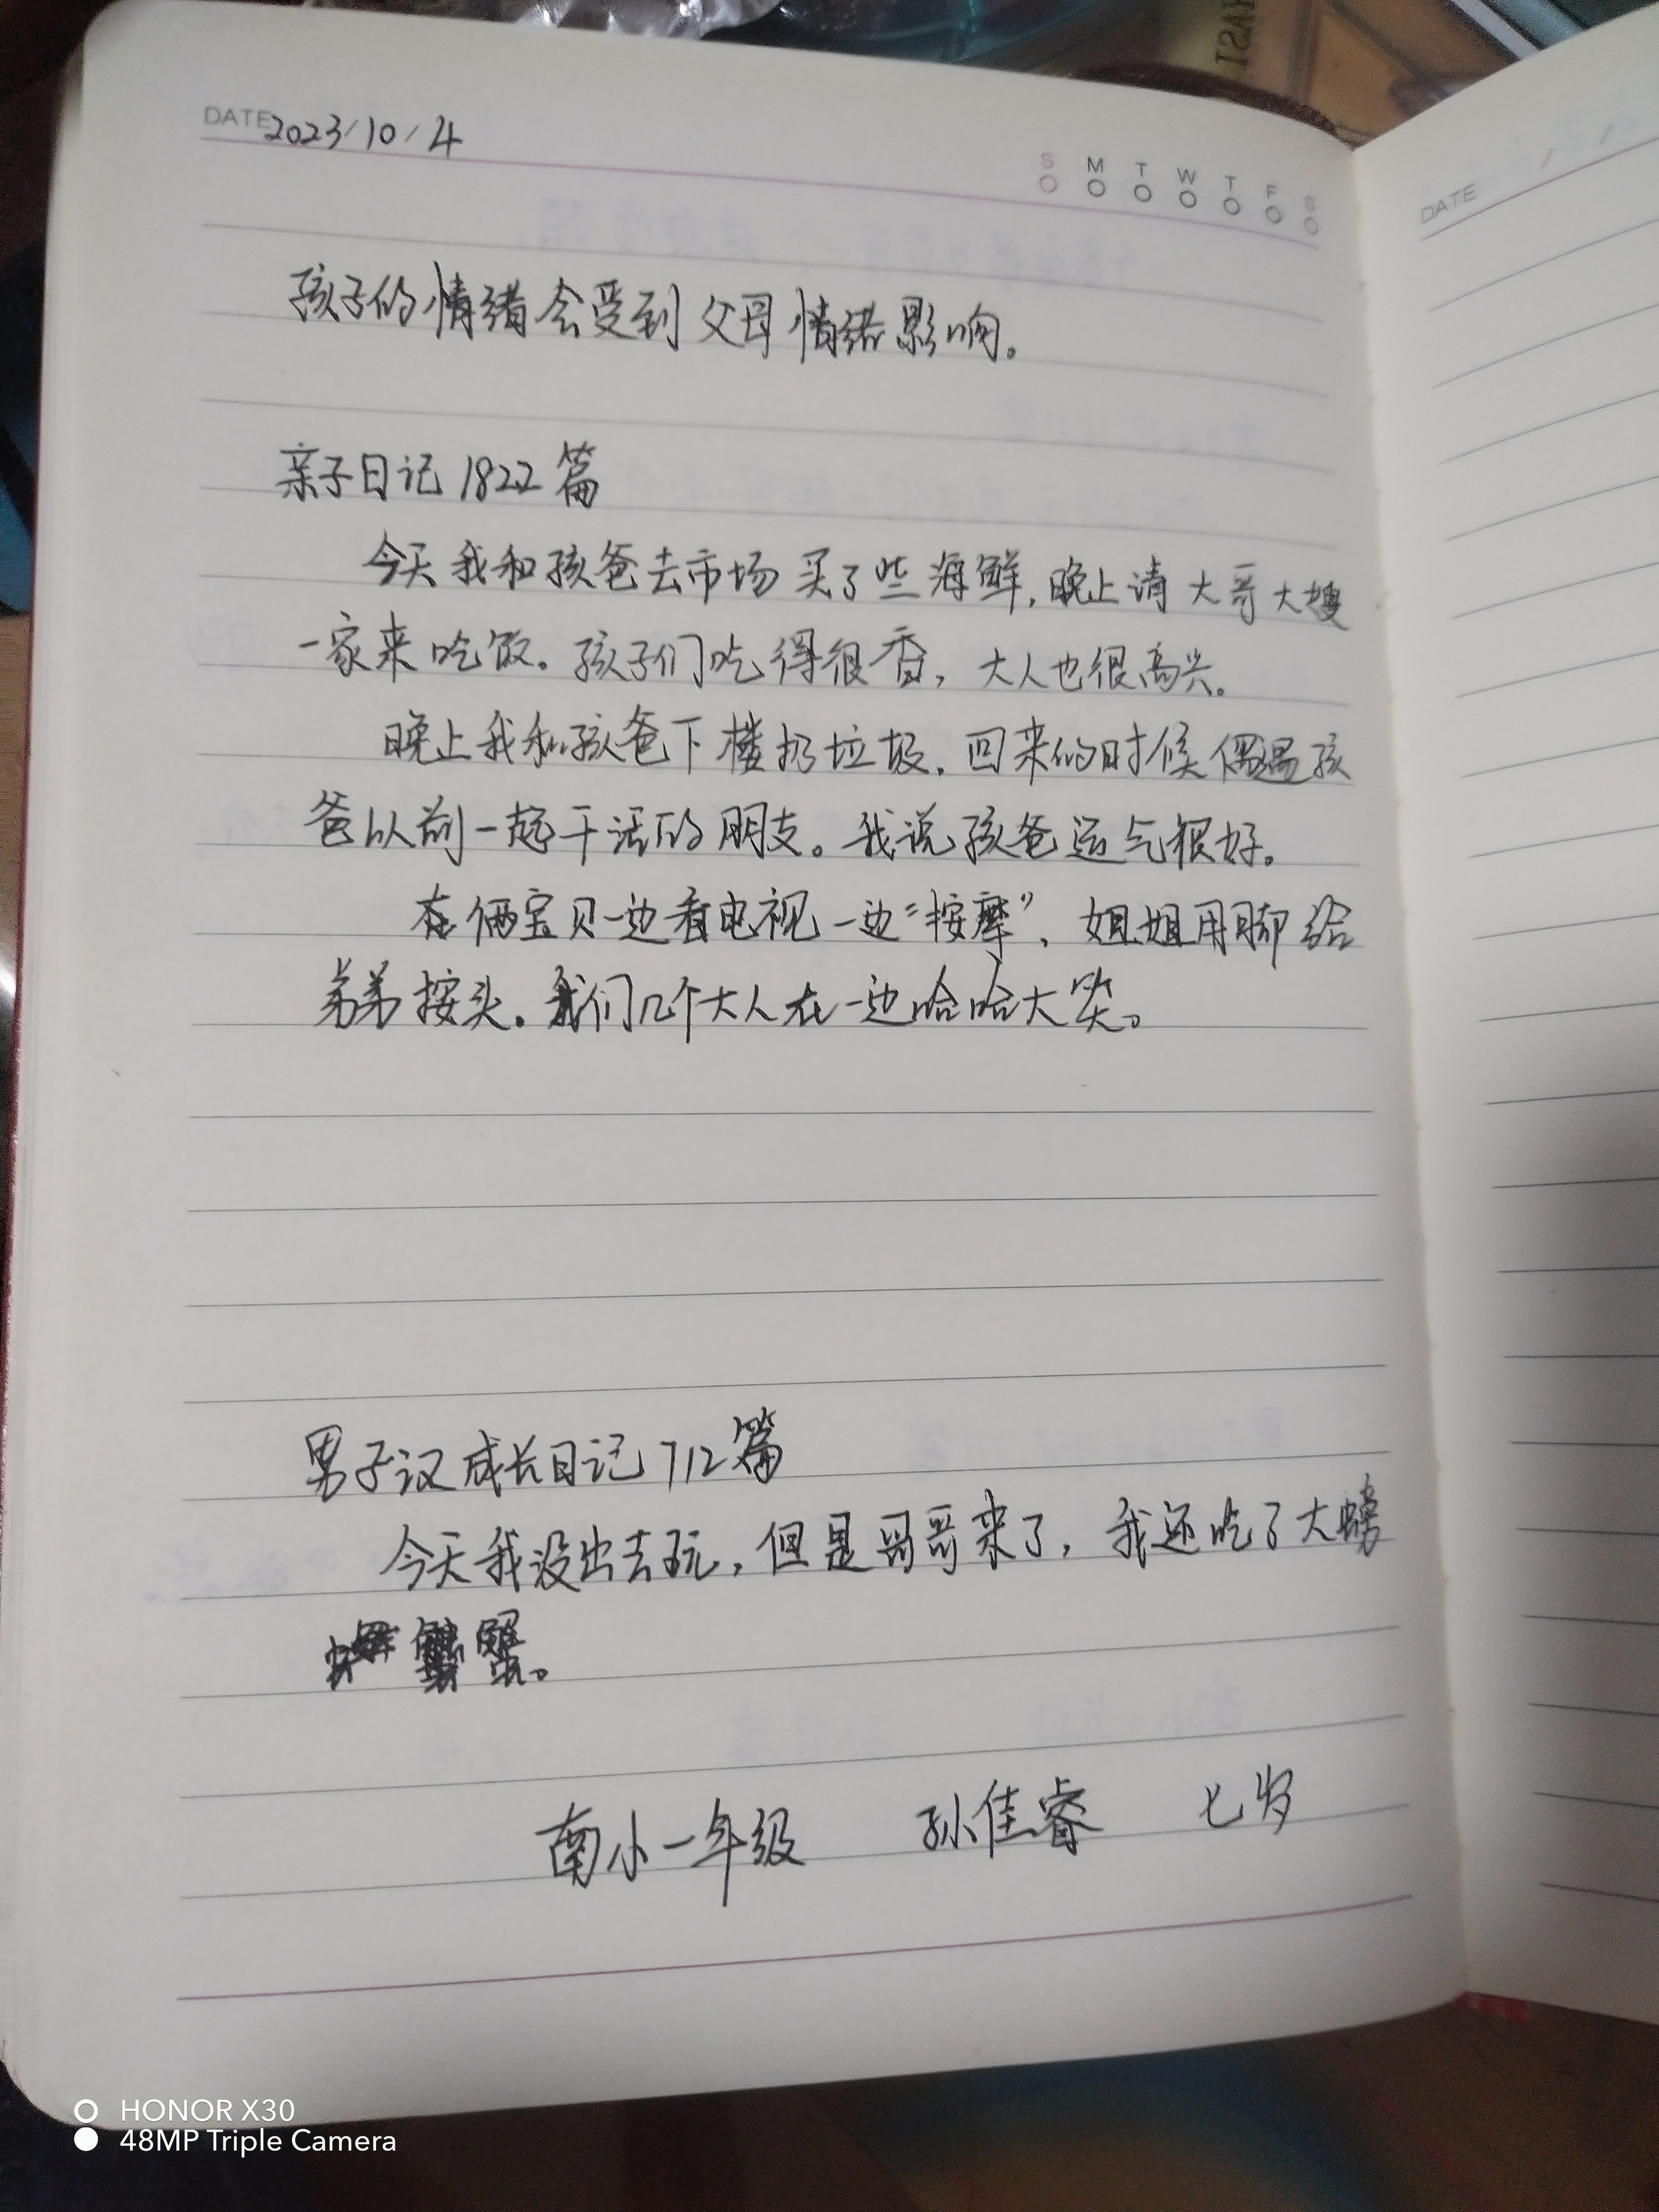 DATE 2023/10/4
S M T W T F S
孩子的情绪会受到父母情绪影响。
亲子日记1822篇
今天我和孩爸去市场买了些海鲜,晚上请大哥大嫂
一家来吃饭。孩子们吃得很香,大人也很高兴。
晚上我和孩爸下楼扔垃圾,回来的时候偶遇孩
爸以前一起干活的朋友。我说孩爸运气很好。
在俩宝贝一边看电视一边“按摩”,姐姐用脚给
弟弟按头。我们几个大人在一边哈哈大笑。
男子汉成长日记712篇
今天我没出去玩,但是哥哥来了,我还吃了大螃
蟹。
南小一年级 孙佳睿 七岁
DATE / /
HONOR X30
48MP Triple Camera